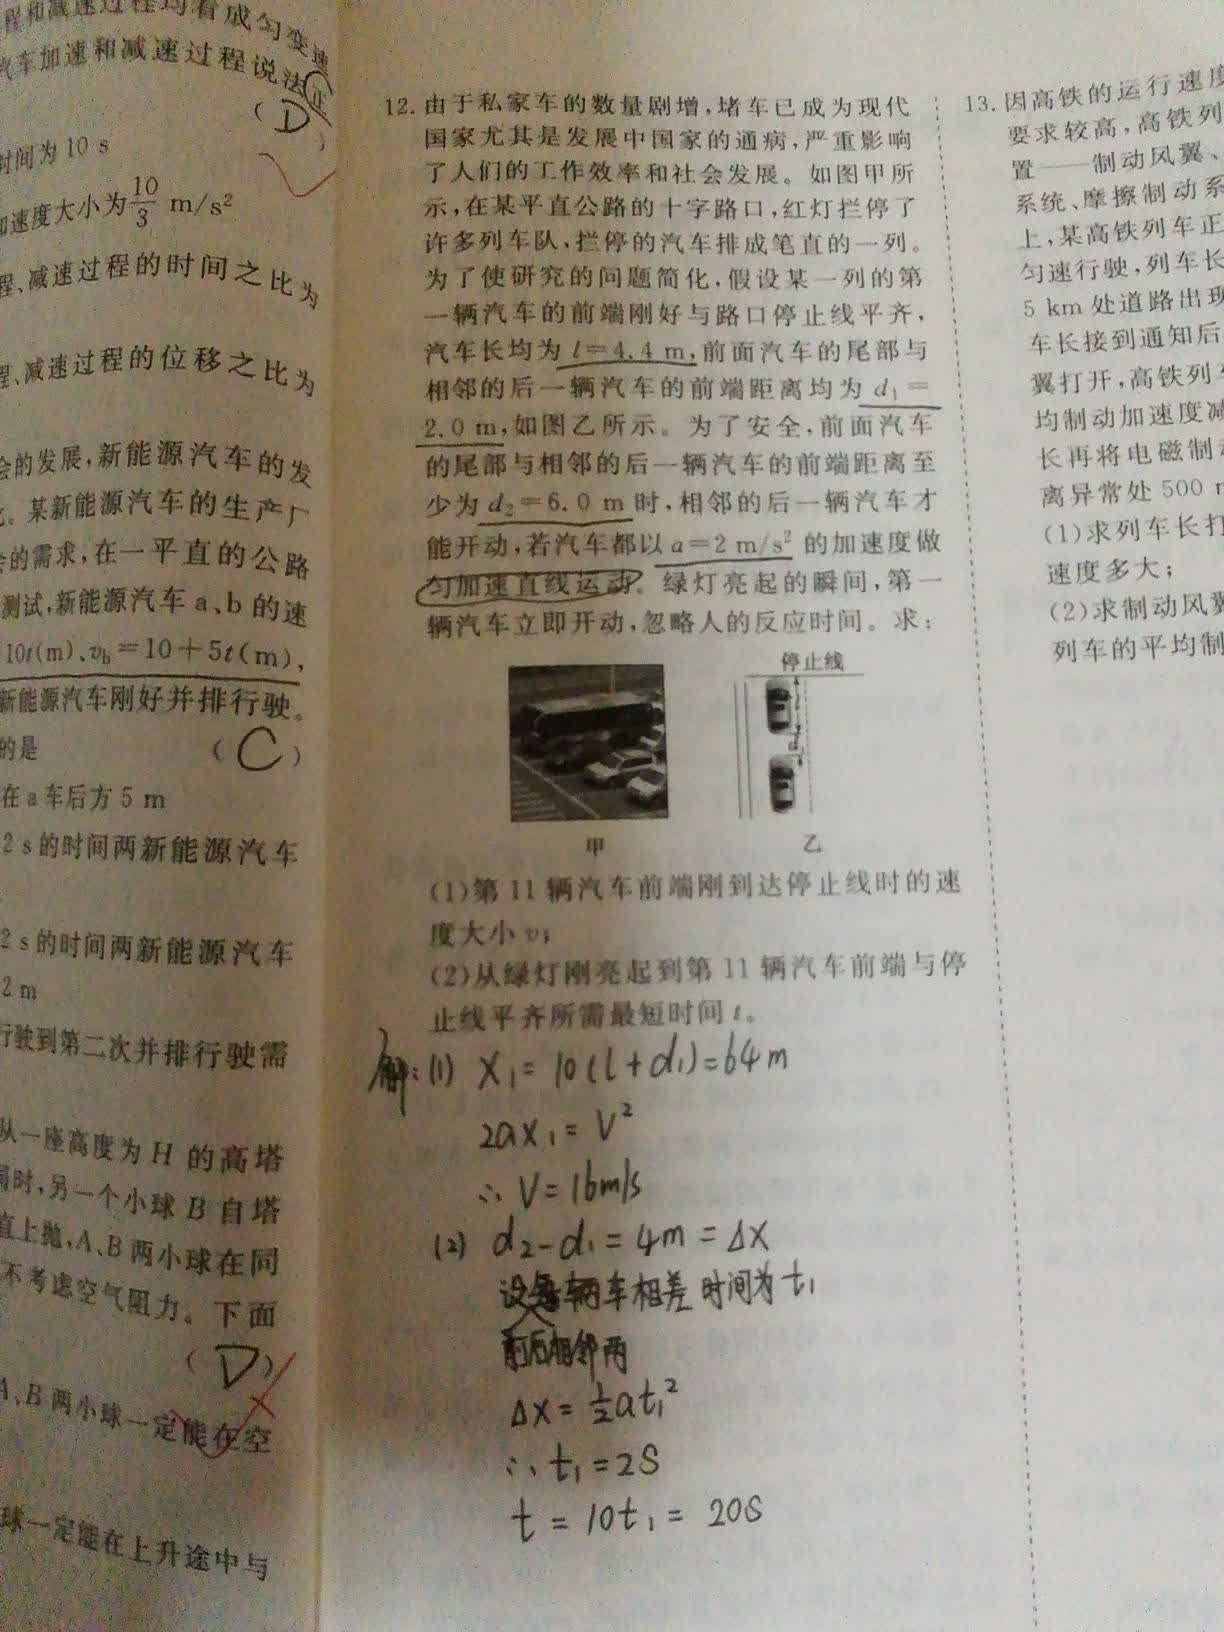 程和减速过程均看成匀变速
汽车加速和减速过程说法正
(D)
时间为10 s
加速度大小为10/3 m/s²
程、减速过程的时间之比为
程、减速过程的位移之比为
会的发展,新能源汽车的发
。某新能源汽车的生产厂
的需求,在一平直的公路
测试,新能源汽车a、b的速
10t(m)、v_b=10+5t(m),
新能源汽车刚好并排行驶。
的是 (C)
在a车后方5 m
2 s的时间两新能源汽车
2 s的时间两新能源汽车
2 m
行驶到第二次并排行驶需
从一座高度为H的高塔
同时,另一个小球B自塔
直上抛,A、B两小球在同
不考虑空气阻力。下面
(D)
A、B两小球一定能在空
球一定能在上升途中与
12.由于私家车的数量剧增,堵车已成为现代
国家尤其是发展中国家的通病,严重影响
了人们的工作效率和社会发展。如图甲所
示,在某平直公路的十字路口,红灯拦停了
许多列车队,拦停的汽车排成笔直的一列。
为了使研究的问题简化,假设某一列的第
一辆汽车的前端刚好与路口停止线平齐,
汽车长均为l=4.4 m,前面汽车的尾部与
相邻的后一辆汽车的前端距离均为d₁=
2.0 m,如图乙所示。为了安全,前面汽车
的尾部与相邻的后一辆汽车的前端距离至
少为d₂=6.0 m时,相邻的后一辆汽车才
能开动,若汽车都以a=2 m/s²的加速度做
匀加速直线运动。绿灯亮起的瞬间,第一
辆汽车立即开动,忽略人的反应时间。求:
停止线
甲
乙
(1)第11辆汽车前端刚到达停止线时的速
度大小v;
(2)从绿灯刚亮起到第11辆汽车前端与停
止线平齐所需最短时间t。
解:(1) X₁=10(l+d₁)=64m
2aX₁=V²
∴V=16m/s
(2) d₂-d₁=4m=ΔX
设 辆车相差时间为t₁
前后相邻两
ΔX=½at₁²
∴t₁=2S
t=10t₁=20S
13.因高铁的运行速度
要求较高,高铁列
置——制动风翼、
系统、摩擦制动系
上,某高铁列车正
匀速行驶,列车长
5 km处道路出现
车长接到通知后
翼打开,高铁列车
均制动加速度减
长再将电磁制动
离异常处500
(1)求列车长打
速度多大;
(2)求制动风翼
列车的平均制